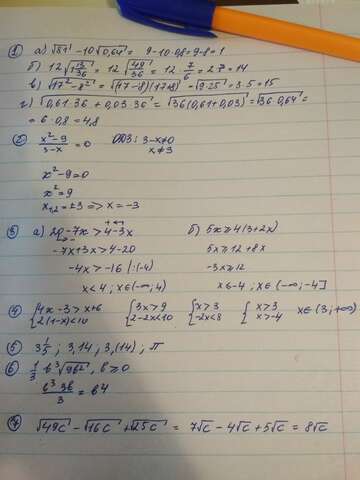 ① а) √81 - 10√0,64 = 9 - 10·0,8 = 9 - 8 = 1
б) 12√1 13/36 = 12√49/36 = 12·7/6 = 2·7 = 14
в) √17² - 8² = √(17-8)(17+8) = √9·25 = 3·5 = 15
г) √0,61·36 + 0,03·36 = √36(0,61+0,03) = √36·0,64 =
= 6·0,8 = 4,8
② x²-9/3-x = 0 ОДЗ: 3-x≠0
x≠3
x²-9=0
x²=9
x₁,₂ = ±3 => x = -3
③ а) 20-7x > 4-3x б) 5x ≥ 4(3+2x)
-7x+3x > 4-20 5x ≥ 12+8x
-4x > -16 |:(-4) -3x ≥ 12
x < 4; x∈(-∞; 4) x ≤ -4; x∈(-∞; -4]
④ {4x-3 > x+6 {3x > 9 {x > 3 {x > 3 x∈(3; +∞)
{2(1-x) < 10 {2-2x < 10 {-2x < 8 {x > -4
⑤ 3 1/5; 3,14; 3,(14); π
⑥ 1/3 b³√9b², b ≥ 0
b³·3b/3 = b4
⑦ √49c - √16c + √25c = 7√c - 4√c + 5√c = 8√c